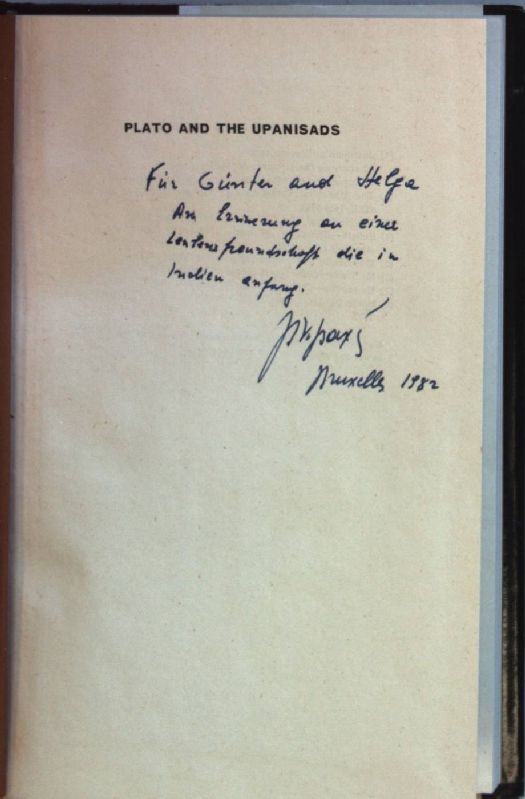 PLATO AND THE UPANISADS
Für Günter and Helga
An Erinnerung an einer
freundschaft die in
Indien anfang.
Bruxelles 1982